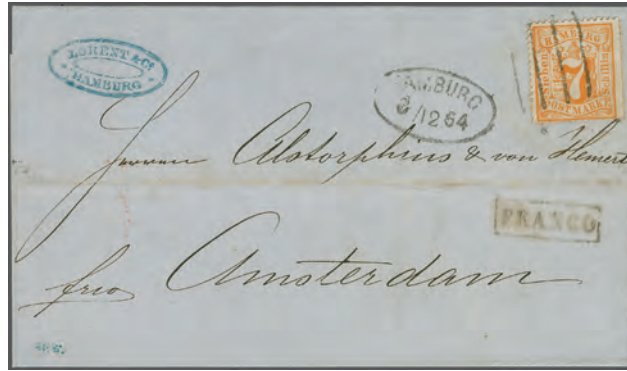 LORENT & Co
HAMBURG
HAMBURG
6/12 64
HAMBURG
7
POSTMARKE
Herren Alstorphius & von Hemert
FRANCO
frco Amsterdam